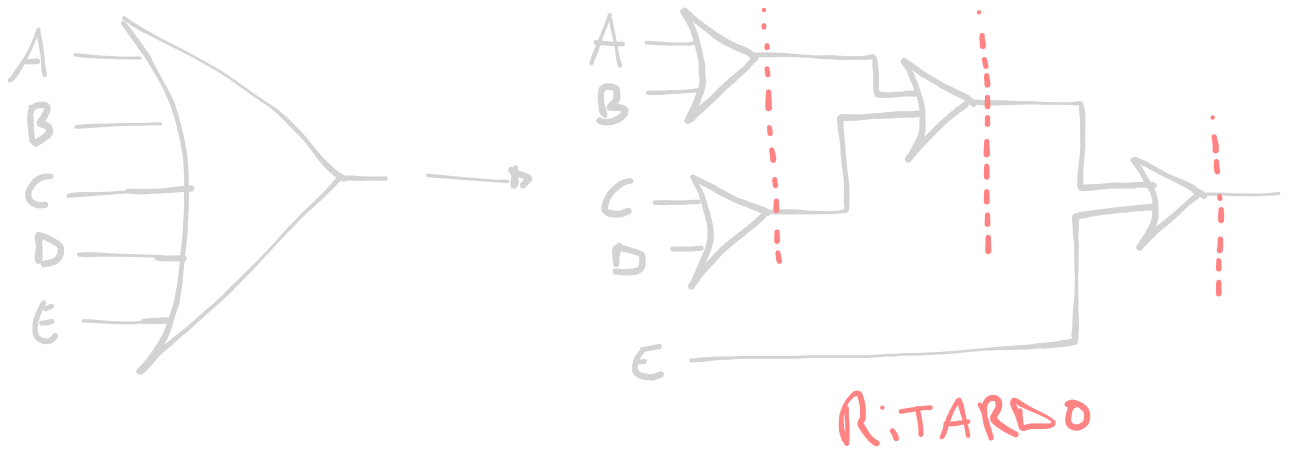 A
B
C
D
E
A
B
C
D
E
RiTARDO